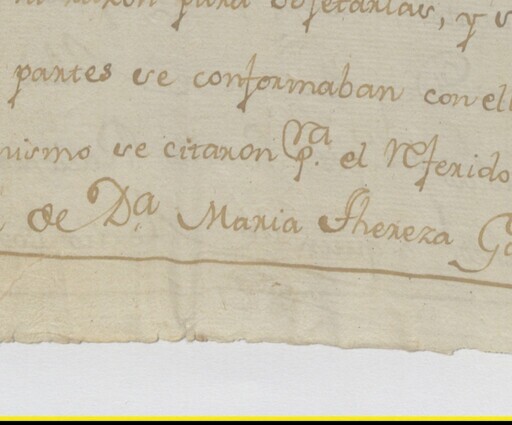 razon para objetarlas, y
partes se conformaban con ell
nismo se citaron pᵃ. el Referido
de Dᵃ Maria Thereza Ga